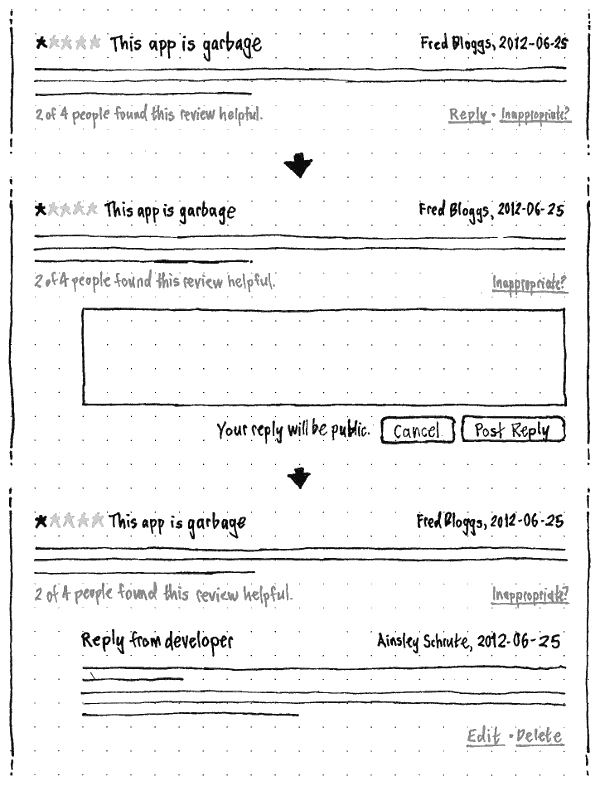 This app is garbage Fred Bloggs, 2012-06-25
2 of 4 people found this review helpful. Reply · Inappropriate?
This app is garbage Fred Bloggs, 2012-06-25
2 of 4 people found this review helpful. Inappropriate?
Your reply will be public. Cancel Post Reply
This app is garbage Fred Bloggs, 2012-06-25
2 of 4 people found this review helpful. Inappropriate?
Reply from developer Ainsley Schrute, 2012-06-25
Edit · Delete